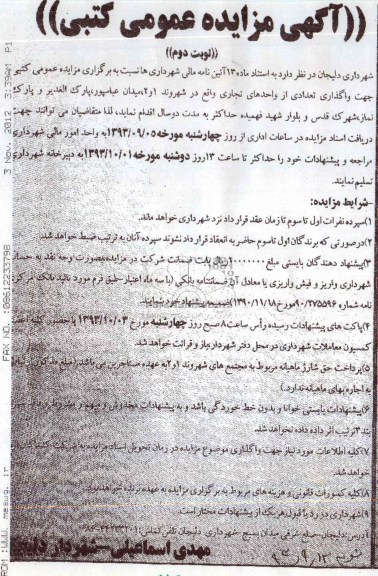 ((آگهی مزایده عمومی کتبی))
((نوبت دوم))
شهرداری دلیجان در نظر دارد به استناد ماده ۱۳ آئین نامه مالی شهرداری ها نسبت به برگزاری مزایده عمومی کتبی
جهت واگذاری تعدادی از واحدهای تجاری واقع در شهروند ۱و۲،میدان عباسپور،پارک الغدیر و پارک
نماز،شهرک قدس و بلوار شهید فهمیده حداکثر به مدت دوسال اقدام نماید، لذا متقاضیان می توانند جهت
دریافت اسناد مزایده در ساعات اداری از روز چهارشنبه مورخه ۱۳۹۳/۰۹/۰۵ به واحد امور مالی شهرداری
مراجعه و پیشنهادات خود را حداکثر تا ساعت ۱۳ روز دوشنبه مورخه ۱۳۹۳/۱۰/۰۱ به دبیرخانه شهرداری
تسلیم نمایند.
-شرایط مزایده:
۱)سپرده نفرات اول تا سوم تا زمان عقد قرارداد نزد شهرداری خواهد ماند.
۲)درصورتی که برندگان اول تا سوم حاضر به انعقاد قرارداد نشوند سپرده آنان به ترتیب ضبط خواهد شد.
۳)پیشنهاد دهندگان بایستی مبلغ ریال بابت ضمانت شرکت در مزایده بصورت وجه نقد به حساب
شهرداری واریز و فیش واریزی یا معادل آن ضمانتنامه بانکی (با سه ماه اعتبار-طبق فرم مورد تائید بانک مرکزی
نامه شماره ۹۰/۲۷۵۵۹۶ مورخ ۱۳۹۰/۱۱/۱۸) ضمیمه پیشنهاد خود نمایند.
۴)پاکت های پیشنهادات رسیده رأس ساعت ۸ صبح روز چهارشنبه مورخ ۱۳۹۳/۱۰/۰۳ با حضور کلیه اعضاء
کمسیون معاملات شهرداری در محل دفتر شهردار باز و قرائت خواهد شد.
۵)پرداخت حق شارژ ماهیانه مربوط به مجتمع های شهروند ۱و۲ به عهده مستاجرین می باشد.(مبلغ مذکور
به اجاره بهای ماهیانه ندارد.)
۶)پیشنهادات بایستی خوانا و بدون خط خوردگی باشد و به پیشنهادات مخدوش و مبهم و مشروط
بند ۳ ترتیب اثر داده داده نخواهد شد.
۷)کلیه اطلاعات مورد نیاز جهت واگذاری موضوع مزایده در زمان تحویل اسناد مزایده به شرکت کنندگان
خواهد شد.
۸)کلیه کسورات قانونی و هزینه های مربوط به برگزاری مزایده به عهده برنده خواهد بود.
۹)شهرداری در رد یا قبول هر یک از پیشنهادات مختار است.
آدرس:دلیجان-ضلع شرقی میدان بسیج-شهرداری دلیجان تلفن تماس:
مهدی اسماعیلی-شهردار دلیجان
3 Nov. 2012 3:39AM P1
FAX NO. :08612233798